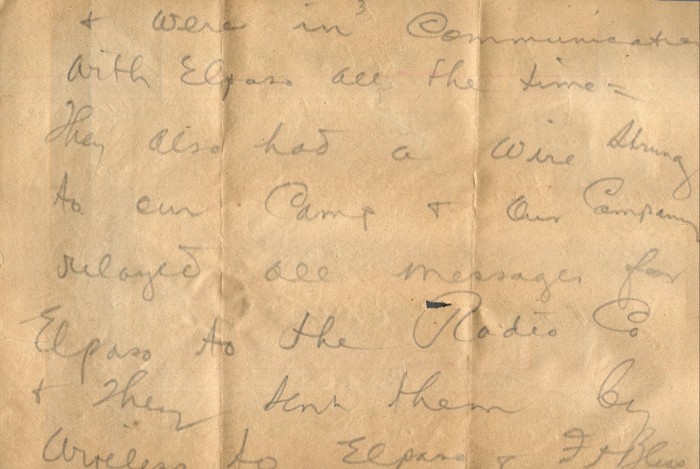 3
& were in Communication
with Elpaso all the time =
They also had a wire strung
to our Camp & Our Company
relayed all messages for
Elpaso to the Radio Co
& They sent them by
Wireless to Elpaso & Ft Bliss